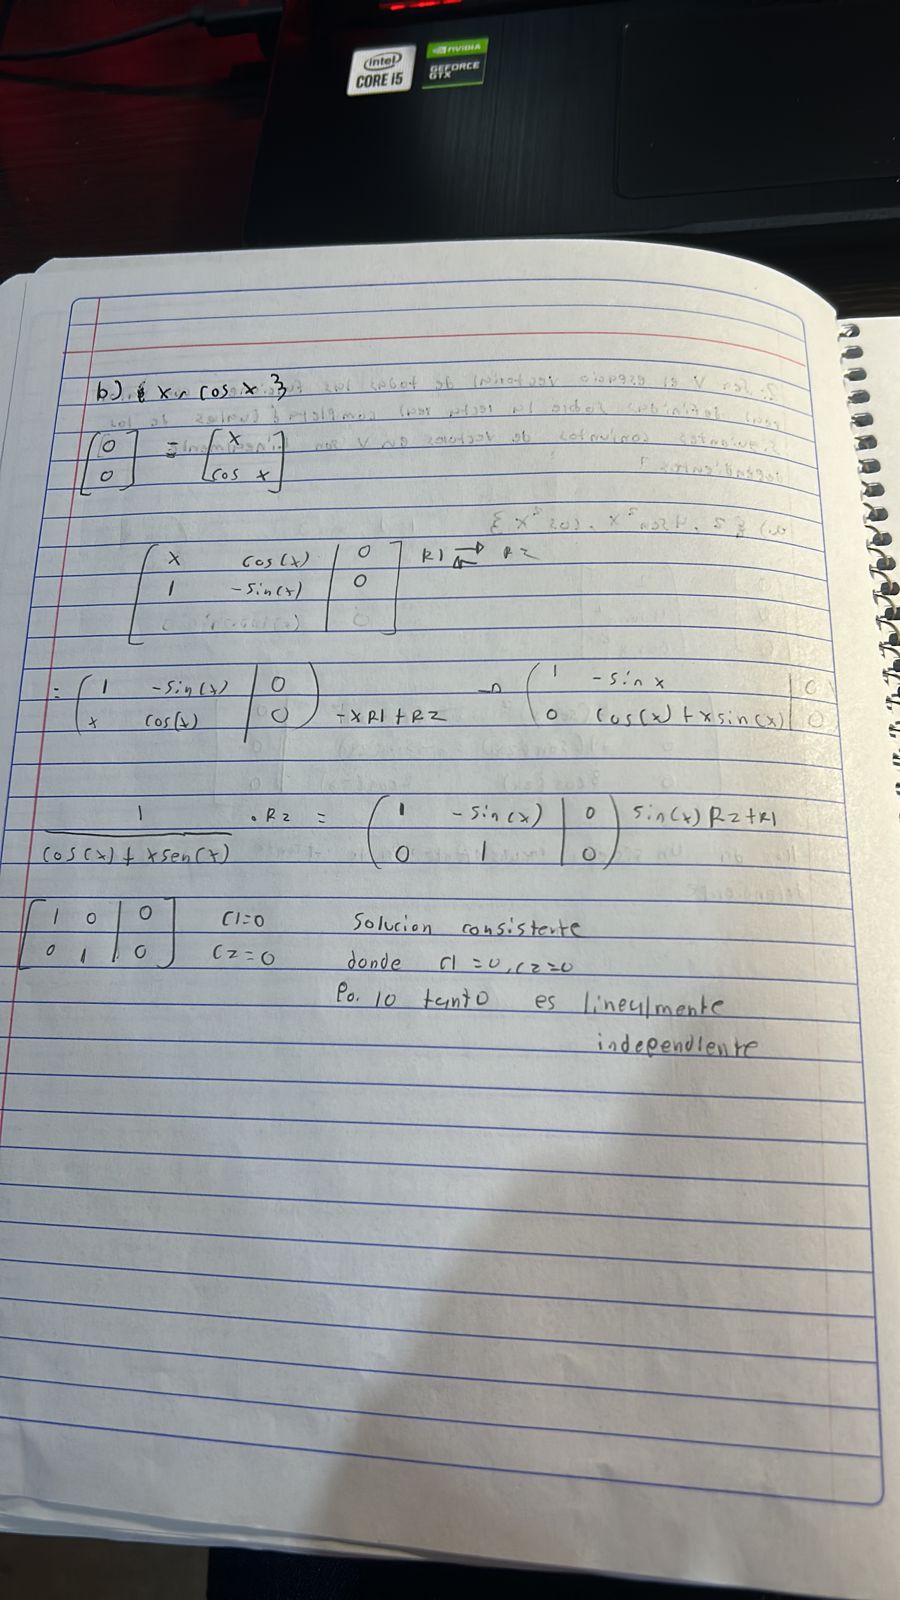 intel
CORE i5
NVIDIA
GEFORCE
GTX
b). { x, cos x }
[0 0] = [x cos x]
[x cos(x) | 0] R1 ⇄ R2
[1 -sin(x) | 0]
= (1 -sin(x) | 0) → (1 -sin x | 0)
(x cos(x) | 0) -xR1+R2 (0 cos(x)+xsin(x) | 0)
1/(cos(x)+xsen(x)) .R2 = (1 -sin(x) | 0) sin(x)R2+R1
(0 1 | 0)
[1 0 | 0] C1=0 Solucion consistente
[0 1 | 0] C2=0 donde C1=0, C2=0
Po. lo tanto es linealmente
independiente